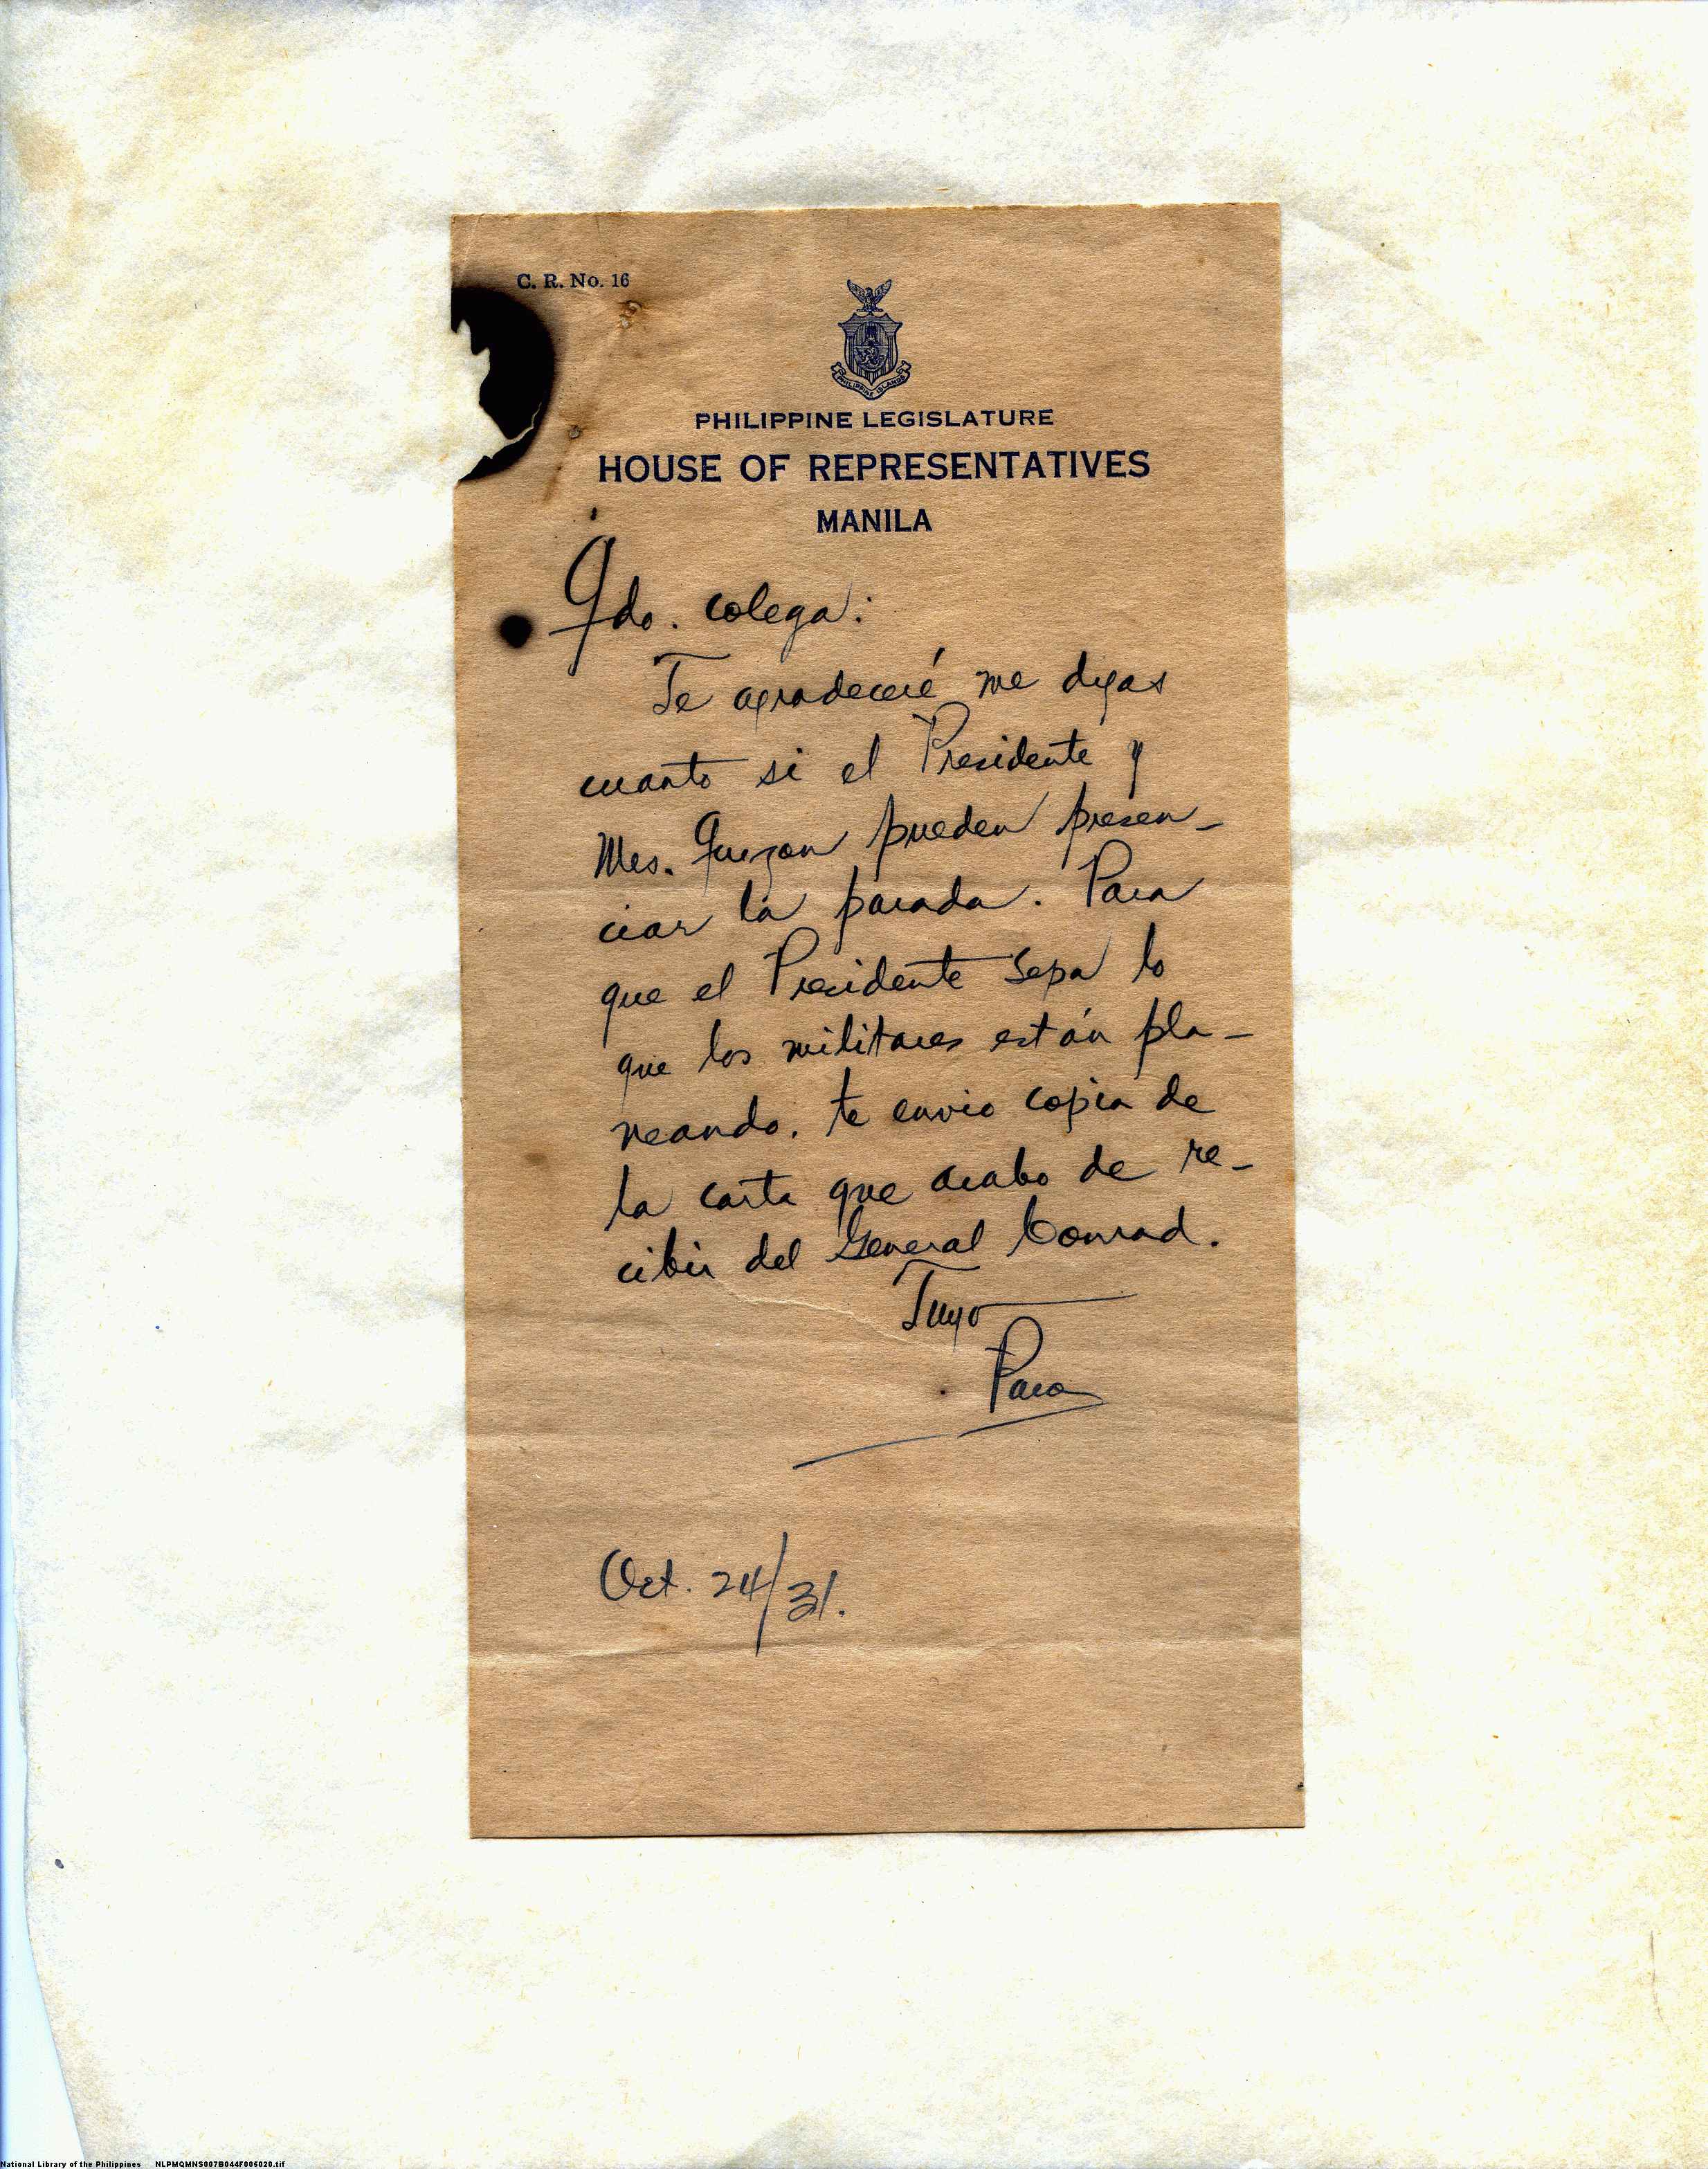 C. R. No. 16
PHILIPPINE ISLANDS
PHILIPPINE LEGISLATURE
HOUSE OF REPRESENTATIVES
MANILA
Qdo. colega:
Te agradeceré me digas
cuanto si el Presidente y
Mrs. Quezon pueden presen-
ciar la parada. Para
que el Presidente sepa lo
que los militares están pla-
neando, te envio copia de
la carta que acabo de re-
cibir del General Conrad.
Tuyo
Paco
Oct. 24/31.
National Library of the Philippines NLPMQMNS007B044F005020.tif